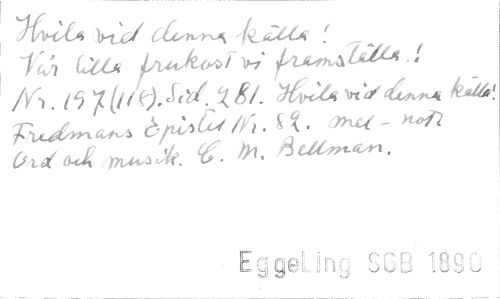 Hvila vid denna källa!
Vår lilla frukost vi framställa!
Nr. 197 (118). Sid. 281. Hvila vid denna källa!
Fredmans Epistel Nr. 82. mel-not
Ord och musik. C. M. Bellman.
EggeLing SGB 1890